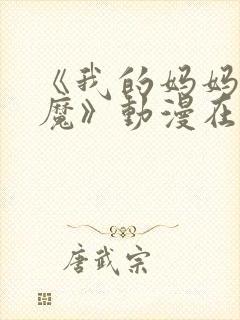 《我的妈妈
魔》動漫在
唐武宗